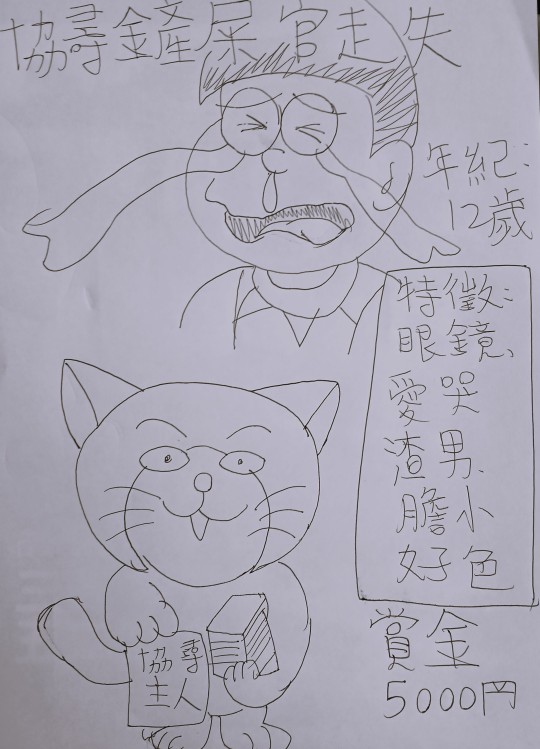 協尋鏟屎官走失
年紀:
12歲
特徵:
眼鏡、
愛哭
渣男、
膽小
好色
賞金
5000円
協尋
主人